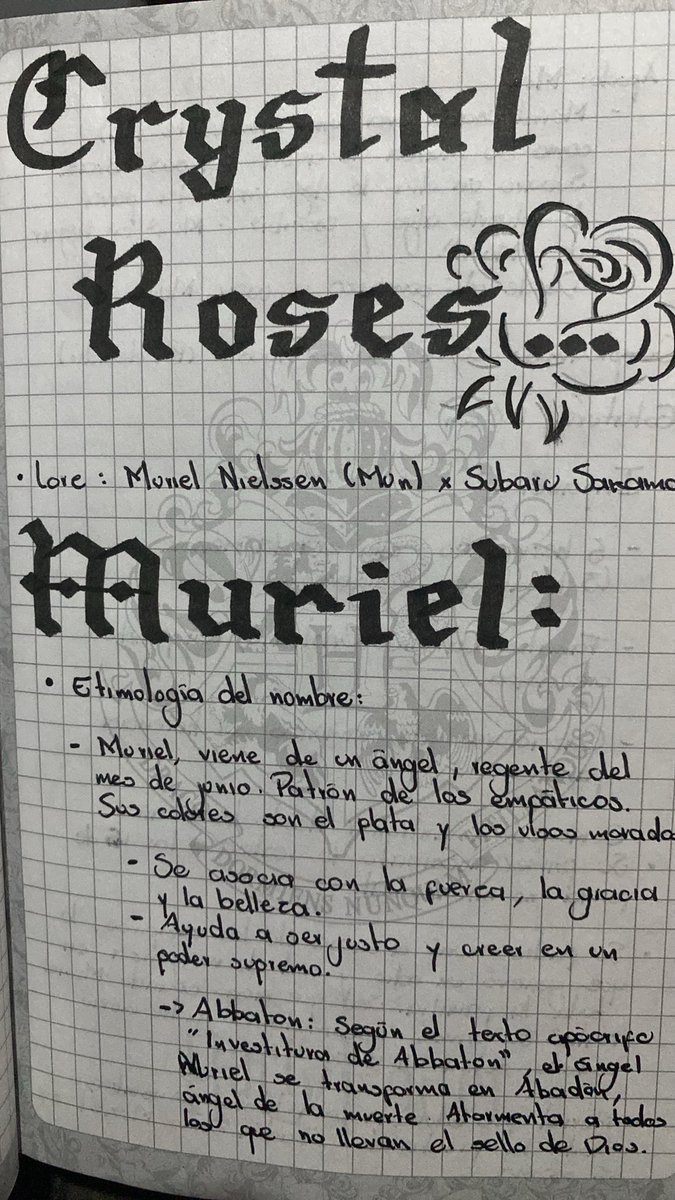 Crystal
Roses
• Lore: Muriel Nielssen (Mun) x Subaru
Muriel:
• Etimología del nombre:
- Muriel, viene de un ángel, regente del
mes de junio. Patrón de los empáticos.
Sus colores son el plata y los morada
- Se asocia con la fuerza, la gracia
y la belleza.
- Ayuda a ser justo y creer en un
poder supremo.
-> Abbaton: Según el texto apócrifo
"Investitura de Abbaton", el ángel
Muriel se transforma en Abadón,
ángel de la muerte. Atormenta a todos
los que no llevan el sello de Dios.